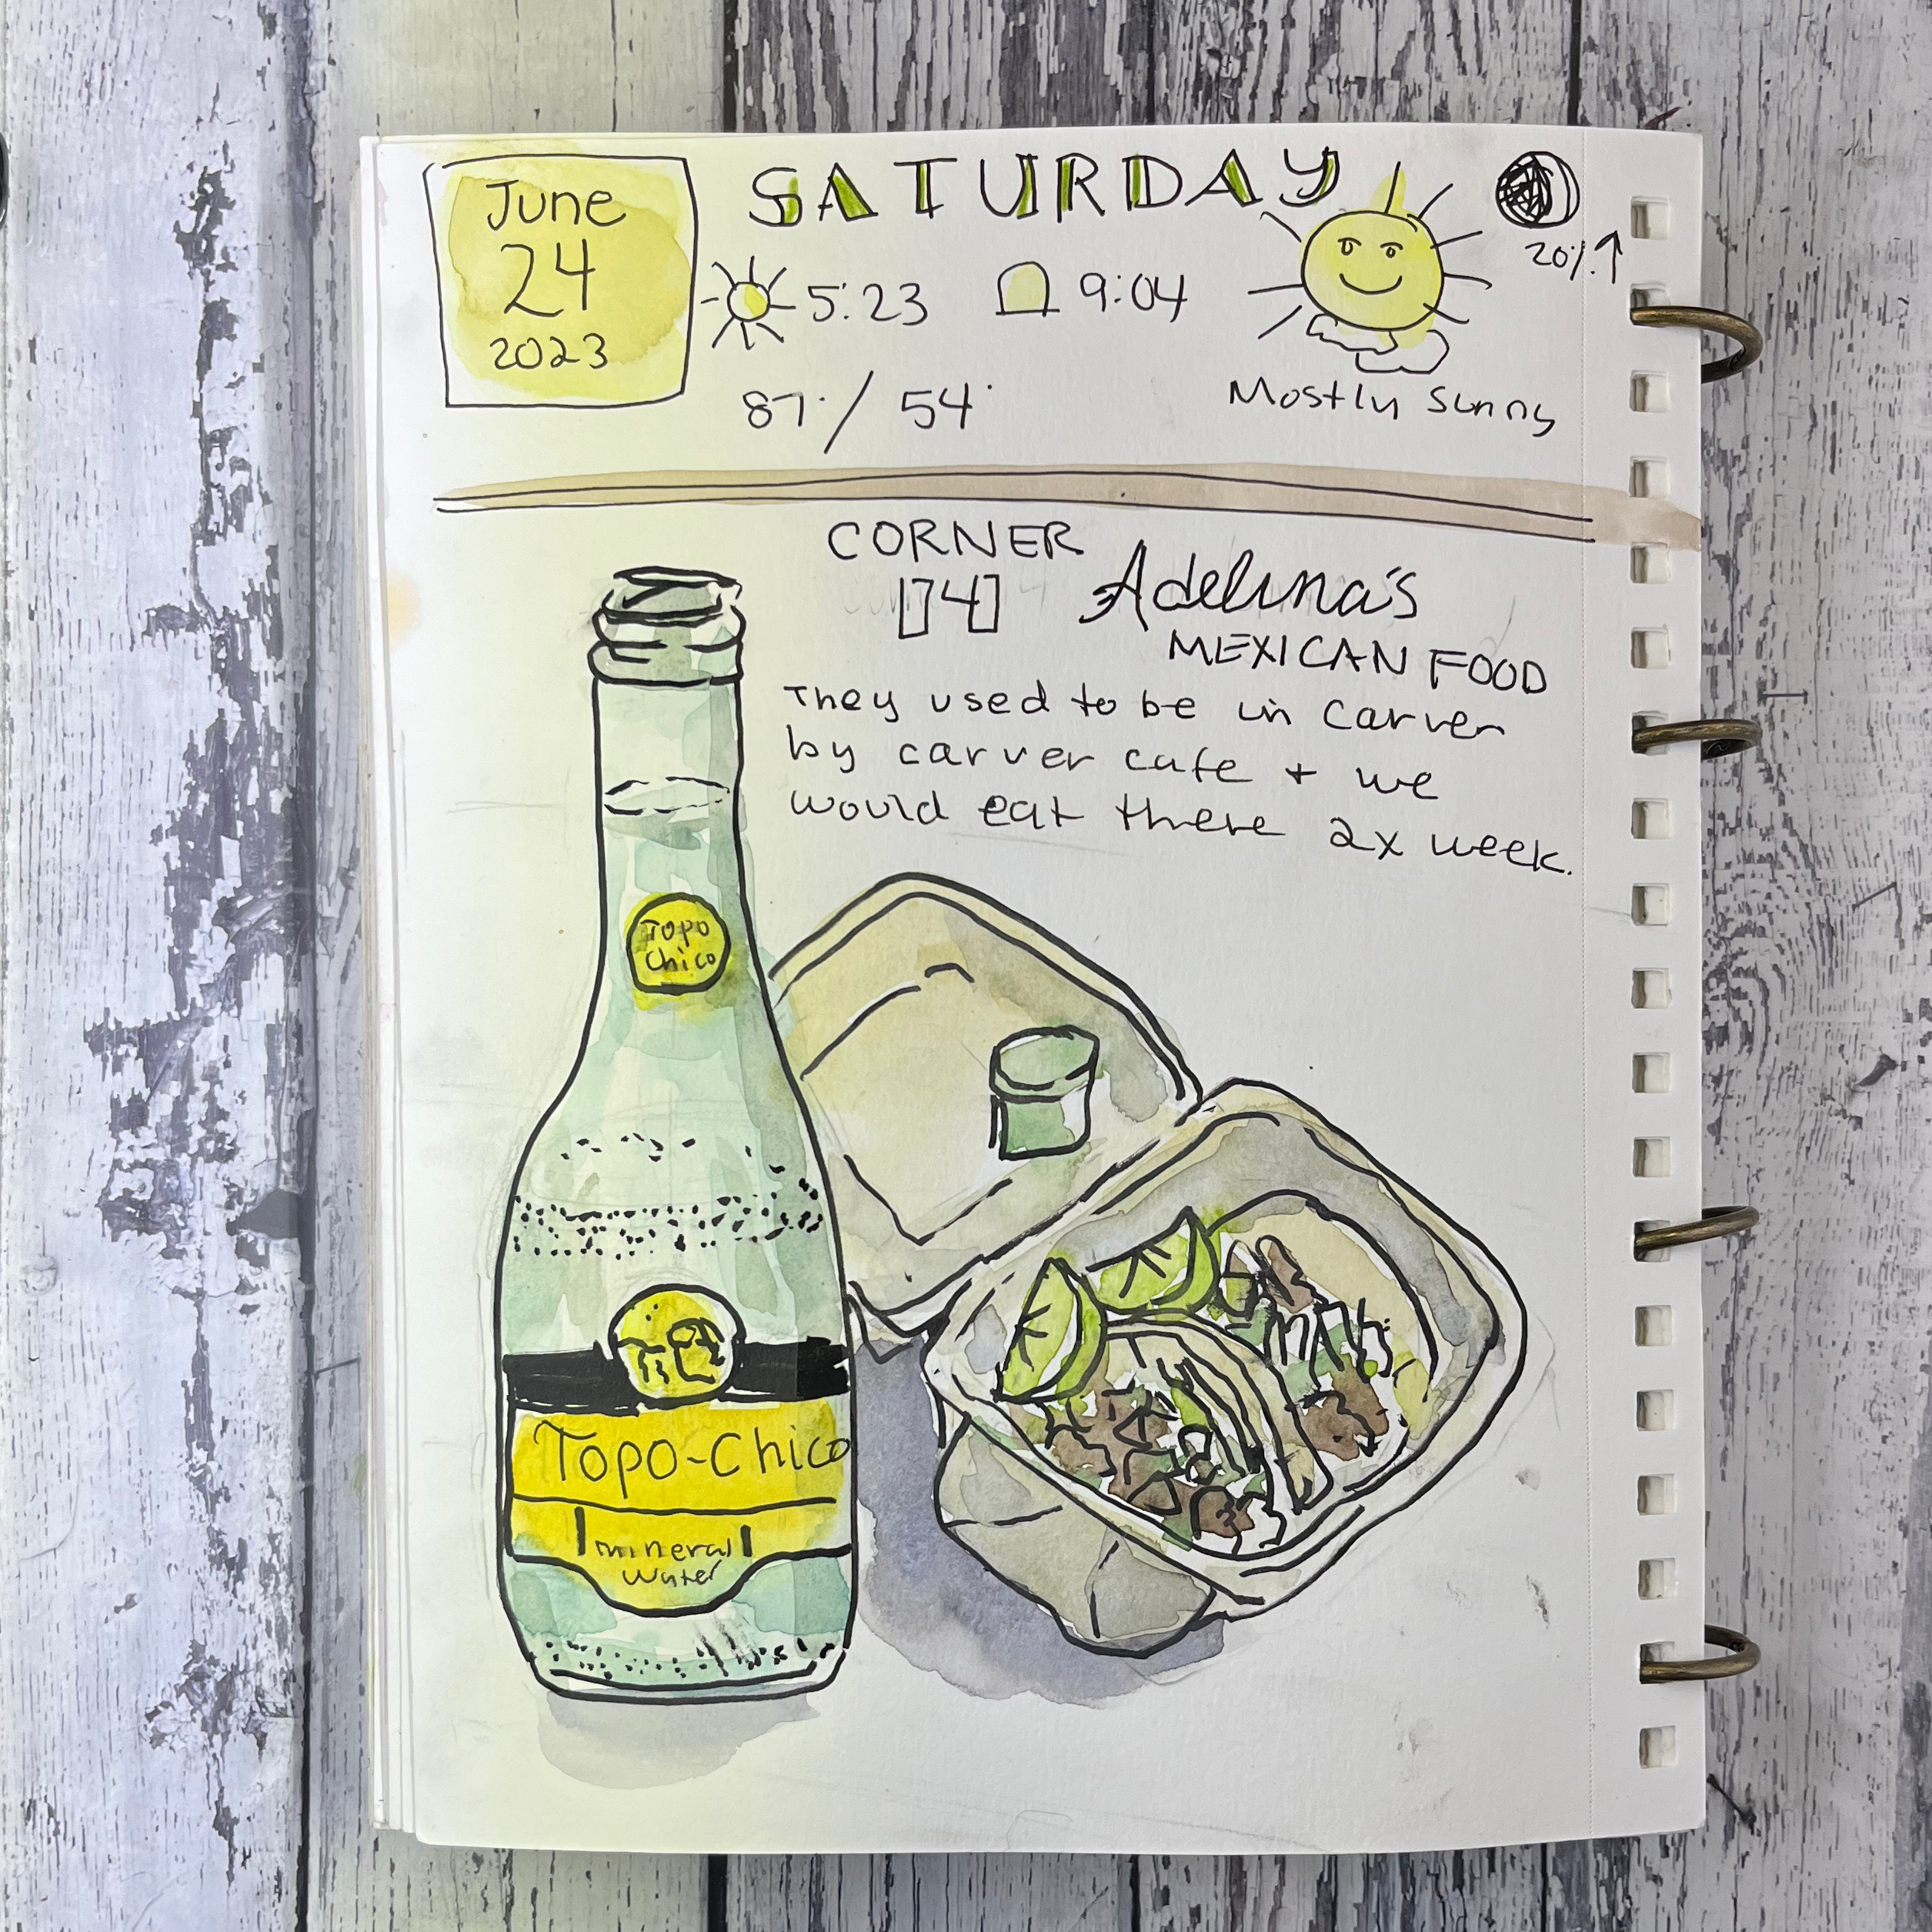 June
24
2023
SATURDAY
5:23
9:04
87° / 54°
Mostly Sunny
20% ↑
CORNER
14
Adelina's
MEXICAN FOOD
They used to be in Carver
by carver cafe + we
would eat there 2x week.
Topo
Chico
Topo-Chico
mineral
water